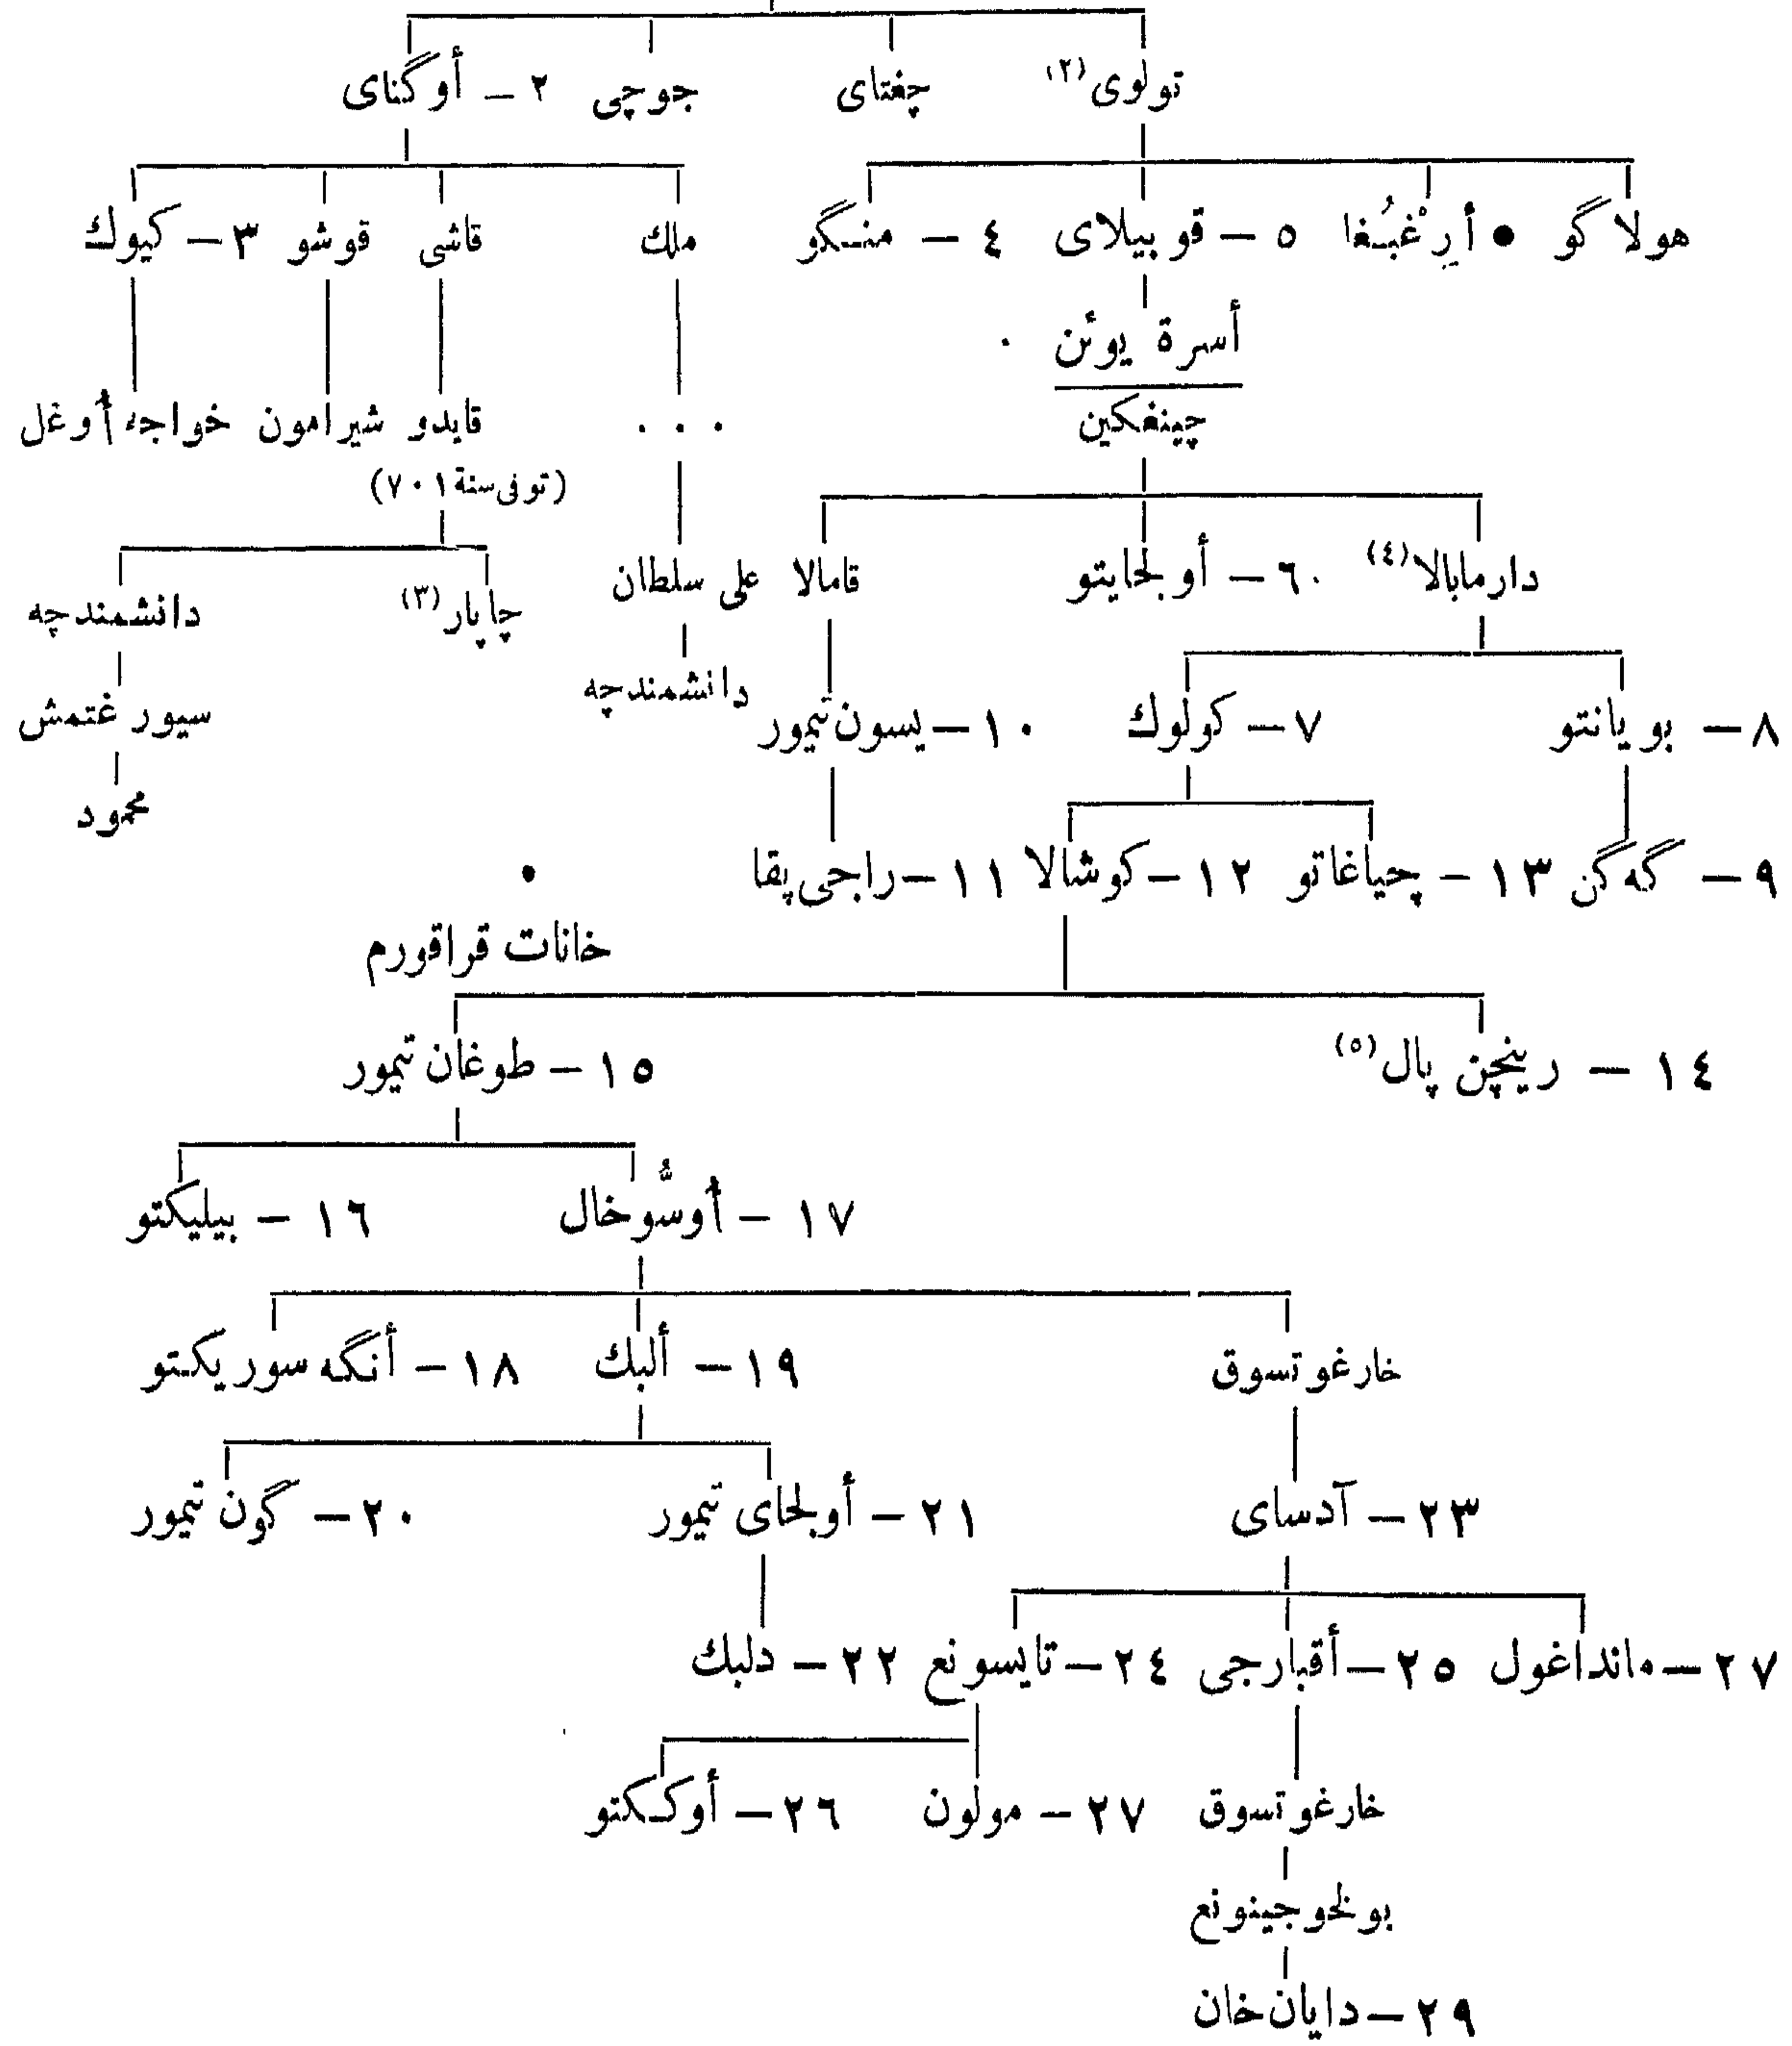 تولوى (٢) چغتاى جوچى ٢ – أوگناى
هولاگو • أرِغْبُغا ٥ – قوبيلاى ٤ – منگو ملك قاشى قوشو ٣ – كيوك
أسرة يوئن
چينغكين ... قايدو شيرامون خواجه أوغل
(توفى سنة ٧٠١)
دارمابالا (٤) ٦ – أولجايتو قامالا على سلطان چاپار (٣) دانشمندچه
٨ – بويانتو ٧ – كولوك ١٠ – يسون تيمور دانشمندچه سيورغتمش
محمود
٩ – گه گن ١٣ – چياغاتو ١٢ – كوشالا ١١ – راجى پقا
خانات قراقورم
١٤ – رينچن پال (٥) ١٥ – طوغان تيمور
١٧ – أوسّوخال ١٦ – بيليكتو
خارغوتسوق ١٩ – ألبك ١٨ – أنگه سوريكتو
٢٣ – آدساى ٢١ – أولجاى تيمور ٢٠ – گون تيمور
٢٧ – مانداغول ٢٥ – أقبارجى ٢٤ – تايسونع ٢٢ – دلبك
خارغوتسوق ٢٧ – مولون ٢٦ – أوككتو
بولخوجينونع
٢٩ – دايان خان